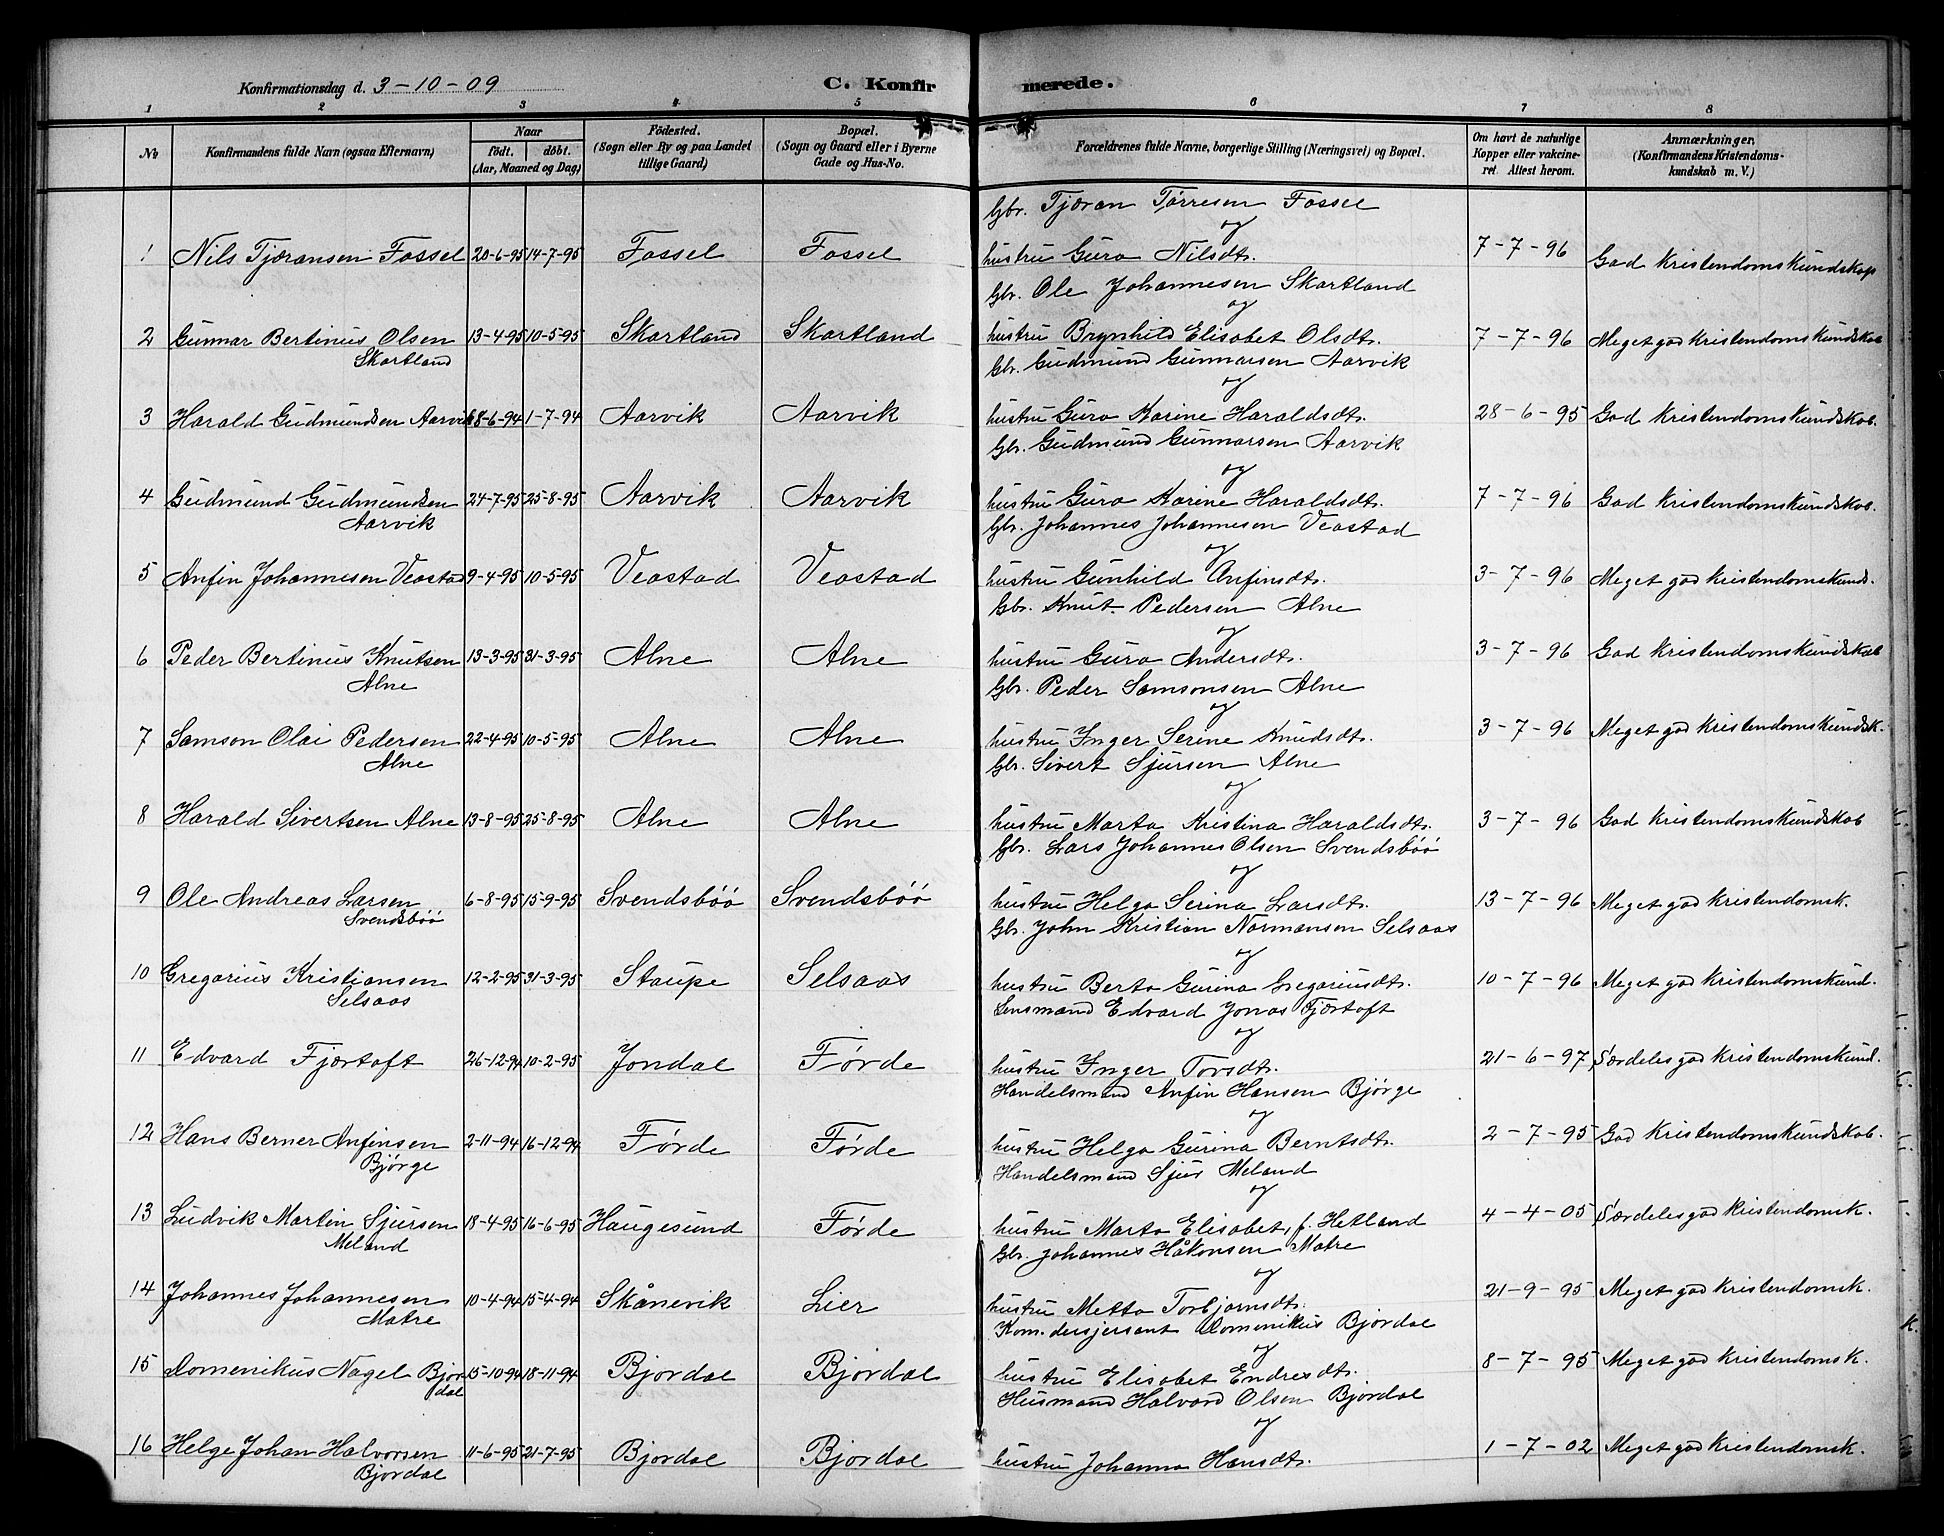 Konfirmationsdag d. 3-10-09 C. Konfirmerede.
1 2 3 4 5 6 7 8
No
Konfirmandens fulde Navn (ogsaa Efternavn)
Naar
født. døbt.
(Aar, Maaned og Dag)
Fødested.
(Sogn eller By og paa Landet
tillige Gaard)
Bopæl.
(Sogn og Gaard eller i Byerne
Gade og Hus-No.
Forældrenes fulde Navne, borgerlige Stilling (Næringsvei) og Bopæl.
Om havt de naturlige
Kopper eller vakcine-
ret. Attest herom.
Anmærkninger,
(Konfirmandens Kristendoms-
kundskab m. V.)
Gbr. Tjæran Tørresen Fossel
og
1 Nils Tjæransen Fossel 20-6-95 14-7-95 Fossel Fossel hustru Guro Nilsdt. 7-7-96 God Kristendomskundskap
Gbr. Ole Johannesen Skartland
og
2 Gunnar Bertinius Olsen 13-4-95 10-5-95 Skartland Skartland hustru Brynhild Elisabet Olsdt. 7-7-96 Meget god Kristendomskundskab
Skartland
Gbr. Gudmund Gunnarsen Aarvik
og
3 Harald Gudmundsen Aarvik 18-6-94 1-7-94 Aarvik Aarvik hustru Guro Karine Haraldsdt. 28-6-95 God Kristendomskundskab.
Gbr. Gudmund Gunnarsen Aarvik
og
4 Gudmund Gudmundsen 24-7-95 25-8-95 Aarvik Aarvik hustru Guro Karine Haraldsdt. 7-7-96 God Kristendomskundskab.
Aarvik
Gbr. Johannes Johannesen Veastad
og
5 Anfin Johannesen Veastad 9-4-95 10-5-95 Veastad Veastad hustru Gunhild Anfinsdt. 3-7-96 Meget god Kristendomskunds.
Gbr. Knut Pedersen Alne
og
6 Peder Bertinius Knutsen 13-3-95 31-3-95 Alne Alne hustru Guro Andersdt. 3-7-96 God Kristendomskundskab
Alne
Gbr. Peder Samsonsen Alne
og
7 Samson Olai Pedersen 22-4-95 10-5-95 Alne Alne hustru Inger Serine Knudsdt. 3-7-96 Meget god Kristendomskundsk.
Alne
Gbr. Sivert Sjursen Alne
og
8 Harald Sivertsen Alne 13-8-95 25-8-95 Alne Alne hustru Marta Kristina Haraldsdt. 3-7-96 God Kristendomskundskab
Gbr. Lars Johannes Olsen Svendsbøø
og
9 Ole Andreas Larsen 6-8-95 15-9-95 Svendsbøø Svendsbøø hustru Helga Serina Larsdt. 13-7-96 Meget god Kristendomsk.
Svendsbøø
Gbr. John Kristian Normansen Selsaas
og
10 Gregorius Kristiansen 12-2-95 31-3-95 Staupe Selsaas hustru Berta Gurina Gregoriusdt. 10-7-96 Meget god Kristendomskund.
Selsaas
Lensmand Edvard Jonas Fjærtoft
og
11 Edvard Fjærtoft 26-12-94 10-2-95 Jondal Førde hustru Inger Torsdt. 21-6-97 Særdeles god Kristendomskund.
Handelsmand Anfin Hansen Bjørge
og
12 Hans Berner Anfinsen 2-11-94 16-12-94 Førde Førde hustru Helga Gurina Berntsdt. 2-7-95 God Kristendomskundskab.
Bjørge
Handelsmand Sjur Meland
og
13 Ludvik Martin Sjursen 18-4-95 16-6-95 Haugesund Førde hustru Marta Elisabet, f. Hetland 4-4-05 Særdeles god Kristendomsk.
Meland
Gbr. Johannes Håkonsen Matre
og
14 Johannes Johannesen 10-4-94 15-4-94 Skånevik Lier hustru Metta Torbjørnsdt. 21-9-95 Meget god Kristendomsk.
Matre
Kom.dersjersant Domenikus Bjordal
og
15 Domenikus Nagel Bjor 15-10-94 18-11-94 Bjordal Bjordal hustru Elisabet Endresdt. 8-7-95 Meget god Kristendomsk.
dal
Husmand Halvard Olsen Bjordal
og
16 Helge Johan Halvorsen 11-6-95 21-7-95 Bjordal Bjordal hustru Johanna Hansdt. 1-7-02 Meget god Kristendomsk.
Bjordal